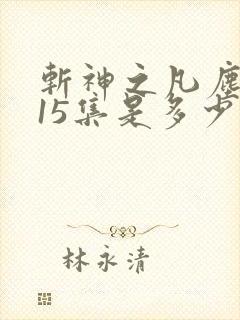 斬神之凡塵
15集是多少
林永清